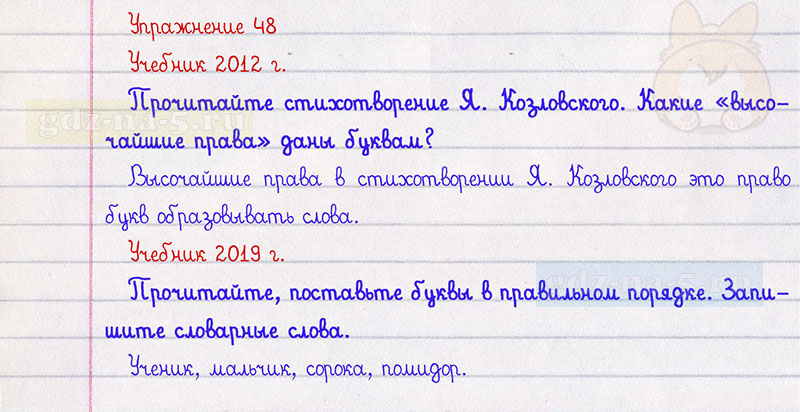 Упражнение 48
Учебник 2012 г.
Прочитайте стихотворение Я. Козловского. Какие «высо-
чайшие права» даны буквам?
Высочайшие права в стихотворении Я. Козловского это право
букв образовывать слова.
Учебник 2019 г.
Прочитайте, поставьте буквы в правильном порядке. Запи-
шите словарные слова.
Ученик, мальчик, сорока, помидор.
gdz-na-5.ru
gdz-na-5.ru